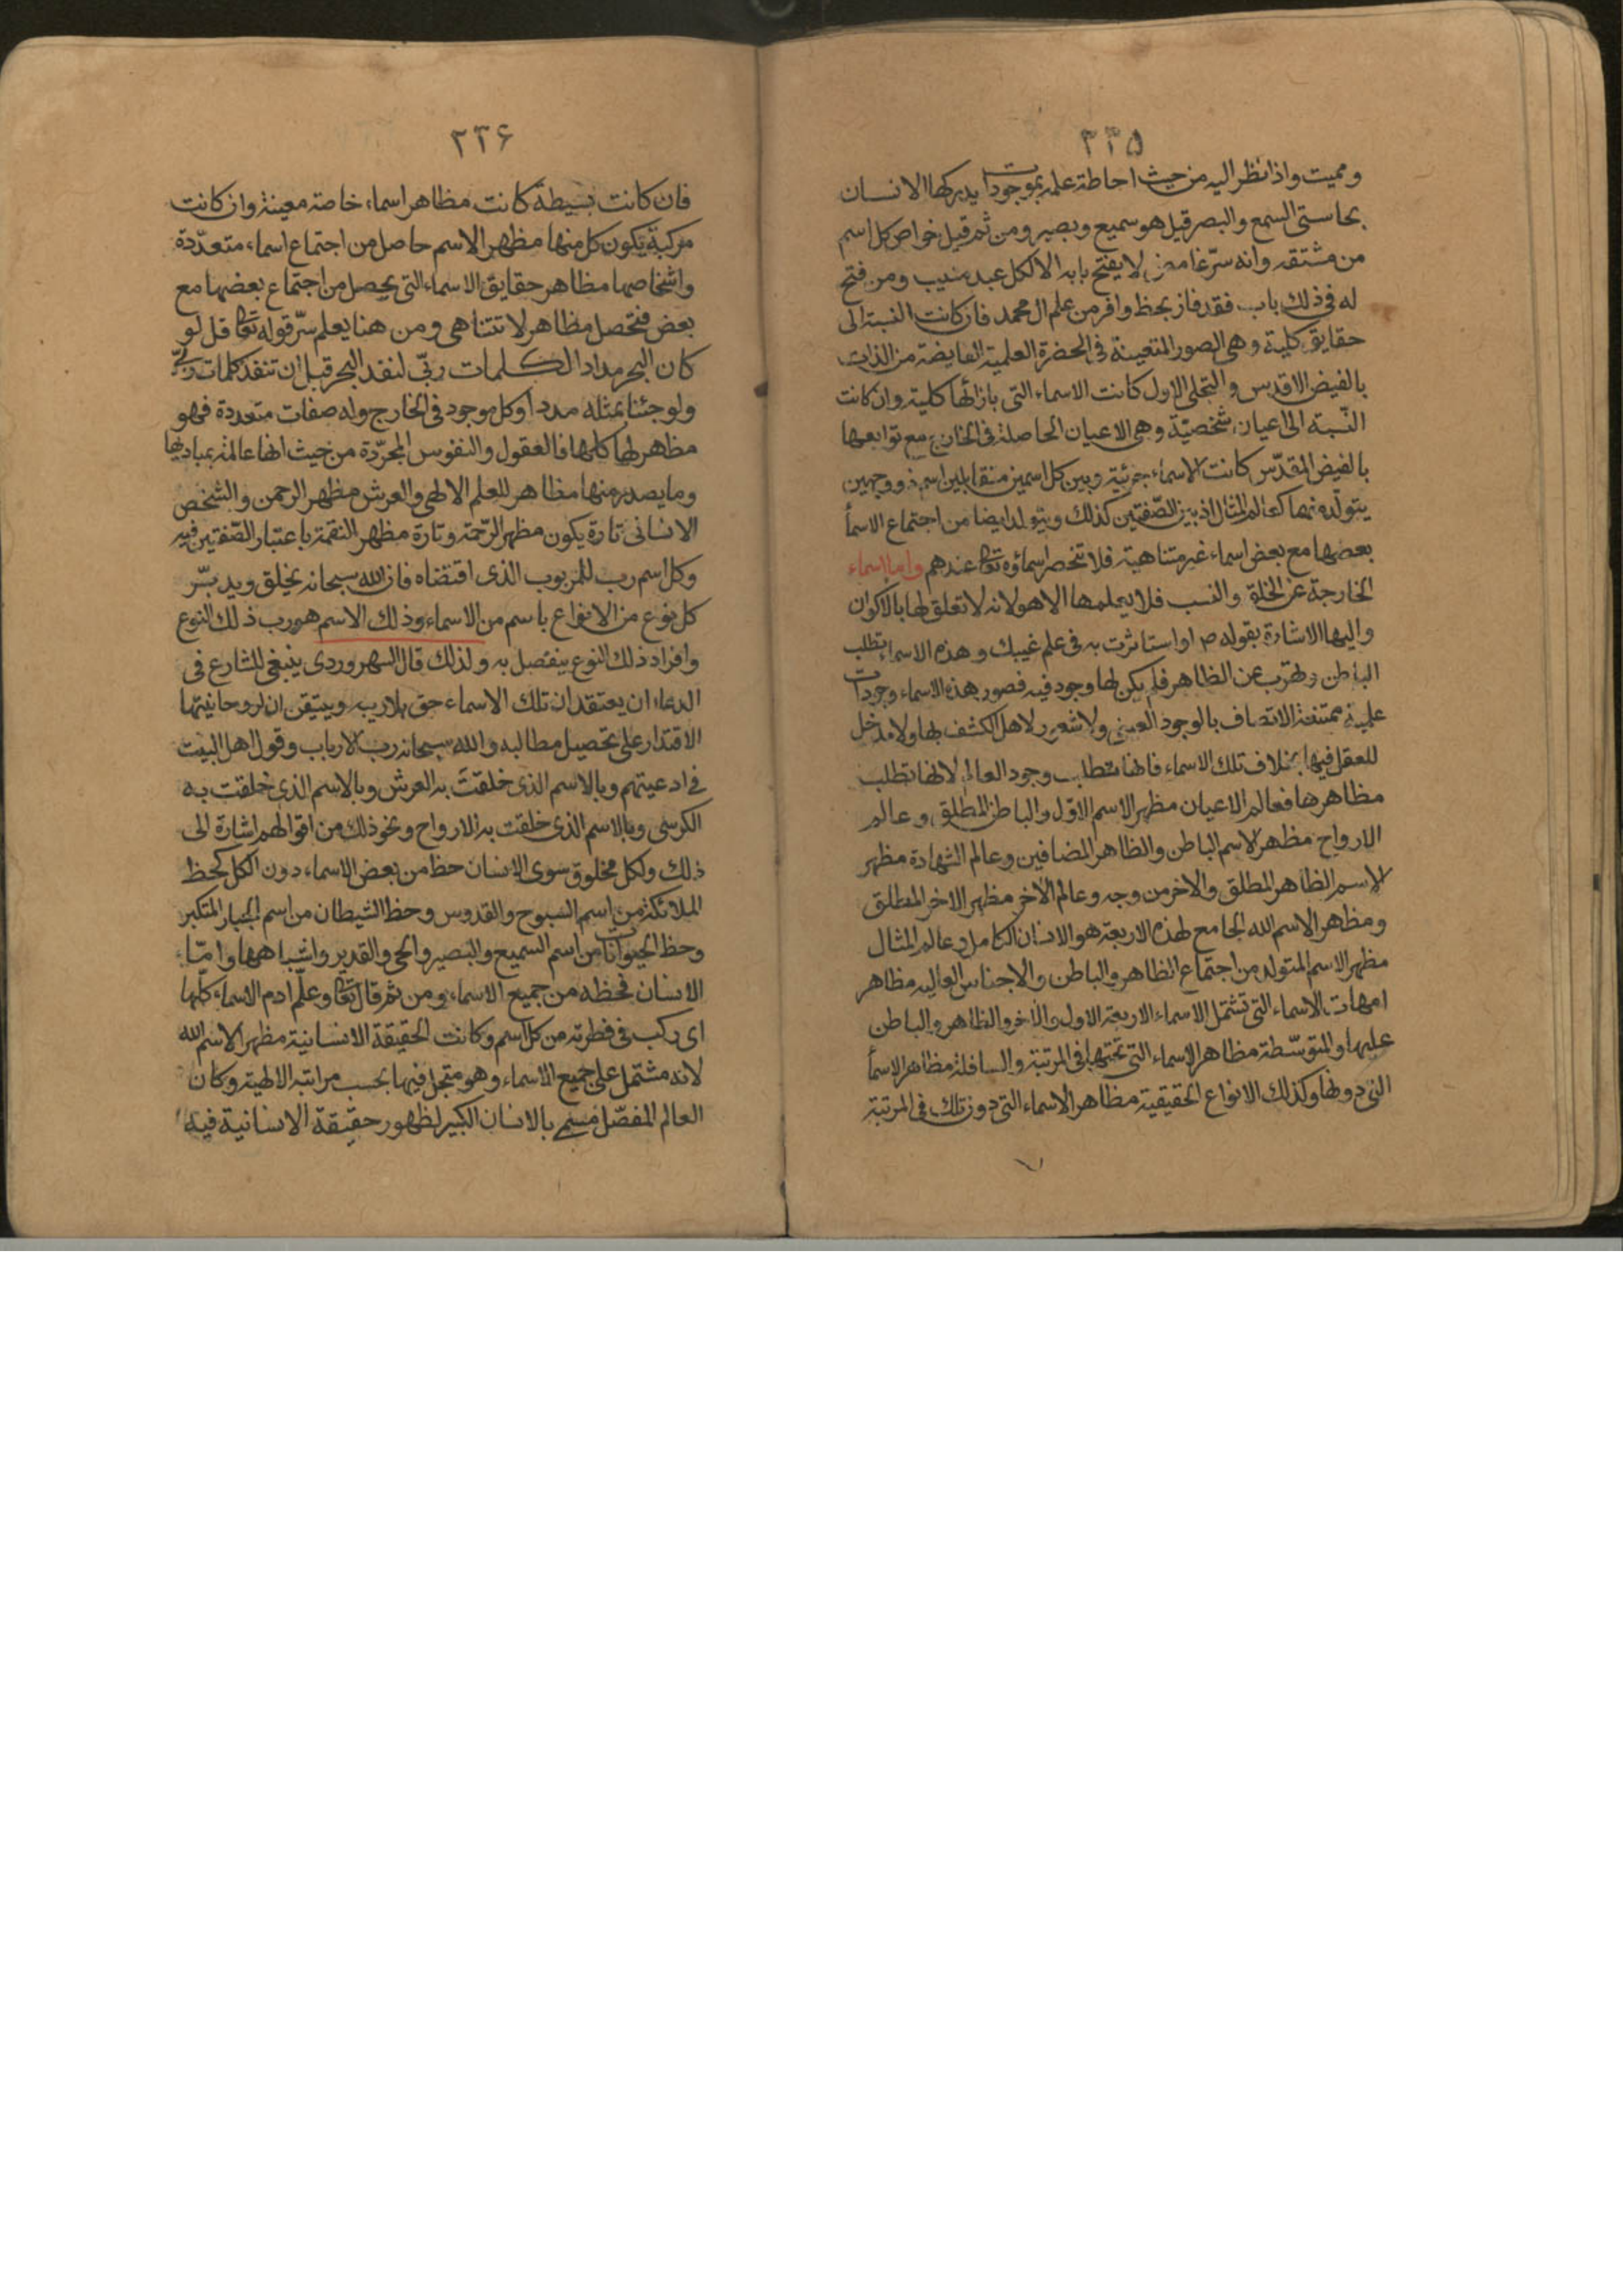 ٣٣۵
ومميت واذا نظر اليه من حيث احاطة علمه بموجودات يدركها الانسان
بحاستى السمع والبصر قيل هو سميع وبصير ومن ثم قيل خواص كل اسم
من مشتقه وانه سرّ غامض لا يفتح بابه الا لكل عبد منيب ومن فتح
له فى ذلك باب فقد فاز بحظ وافر من علم ال محمد فان كانت النسبة الى
حقايق كلية وهى الصور المتعينة فى الحضرة العلمية الفايضة من الذات
بالفيض الاقدس والتجلى الاول كانت الاسماء التى بازائها كلية وان كانت
النّسبة الى اعيان شخصيّة وهى الاعيان الحاصلة فى الخارج مع توابعها
بالفيض المقدّس كانت الاسماء جزئية وبين كل اسمين متقابلين اسم ذو وجهين
يتولّد منهما كعالم المثال اذ بين الصّفتين كذلك ويتولد ايضا من اجتماع الاسمأ
بعضها مع بعض اسماء غير متناهية فلا تنحصر اسماؤه تعالى عندهم واما اسماء
الخارجة عن الخلق والنسب فلا يعلمها الا هو لانه لا تعلق لها بالاكوان
واليها الاشارة بقوله ص او استاثرت به فى علم غيبك وهذه الاسماء تطلب
الباطن وتهرب عن الظاهر فلم يكن لها وجود فيه فصور هذه الاسماء وجودات
علمية ممتنعة الاتصاف بالوجود العينى ولا شعور لاهل الكشف بها ولا مدخل
للعقل فيها بخلاف تلك الاسماء فانها تطلب وجود العالم لانها تطلب
مظاهرها فعالم الاعيان مظهر الاسم الاوّل والباطن المطلق وعالم
الارواح مظهر الاسم الباطن والظاهر المضافين وعالم الشهادة مظهر
الاسم الظاهر المطلق والاخر من وجه وعالم الاخر مظهر الاخر المطلق
ومظهر الاسم الله الجامع لهذه الاربعة هو الانسان الكامل وعالم المثال
مظهر الاسم المتولد من اجتماع الظاهر والباطن والاجناس العاليه مظاهر
امهات الاسماء التى تشتمل الاسماء الاربعة الاول والاخر والظاهر والباطن
عليها والمتوسّطة مظاهر الاسماء التى تحتها فى المرتبة والسافلة مظاهر الاسمأ
التى دونها وكذلك الانواع الحقيقية مظاهر الاسماء التى دون تلك فى المرتبة
٣٣۶
فان كانت بسيطة كانت مظاهر اسماء خاصة معينة وان كانت
مركبة يكون كل منها مظهر الاسم حاصل من اجتماع اسماء متعدّدة
واشخاصها مظاهر حقايق الاسماء التى يحصل من اجتماع بعضها مع
بعض فتحصل مظاهر لا تتناهى ومن هنا يعلم سرّ قوله تعالى قل لو
كان البحر مدادا لكلمات ربّى لنفد البحر قبل ان تنفد كلمات ربّى
ولو جئنا بمثله مددا وكل موجود فى الخارج وله صفات متعددة فهو
مظهر لها كلها فالعقول والنفوس المجرّدة من حيث انها عالمة بمباديها
وما يصدر منها مظاهر للعلم الالهى والعرش مظهر الرحمن والشخص
الانسانى تارة يكون مظهر الرّحمة وتارة مظهر النقمة باعتبار الصّفتين فيه
وكل اسم رب للمربوب الذى اقتضاه فان الله سبحانه يخلق ويدبّر
كل نوع من الانواع باسم من الاسماء وذلك الاسم هو رب ذلك النوع
وافراد ذلك النوع ينفصل به ولذلك قال السهروردى ينبغى للشارع فى
الدعاء ان يعتقد ان تلك الاسماء حق بلا ريب ويتيقن ان لروحانيتها
الاقتدار على تحصيل مطالبه والله سبحانه رب الارباب وقول اهل البيت
فى ادعيتهم وبالاسم الذى خلقت به العرش وبالاسم الذى خلقت به
الكرسى وبالاسم الذى خلقت به الارواح ونحو ذلك من اقوالهم اشارة الى
ذلك ولكل مخلوق سوى الانسان حظ من بعض الاسماء دون الكل كحظ
الملائكة من اسم السبوح والقدوس وحظ الشيطان من اسم الجبار المتكبر
وحظ الحيوانات من اسم السميع والبصير والحى والقدير واشباهها وامّا
الانسان فحظه من جميع الاسماء ومن ثم قال تعالى وعلّم ادم الاسماء كلّها
اى ركب فى فطرته من كل اسم وكانت الحقيقة الانسانية مظهر الاسم الله
لانه مشتمل على جميع الاسماء وهو متجل فيها بحسب مراتبه الالهية وكان
العالم المفصّل مسمى بالانسان الكبير لظهور حقيقة الانسانية فيه